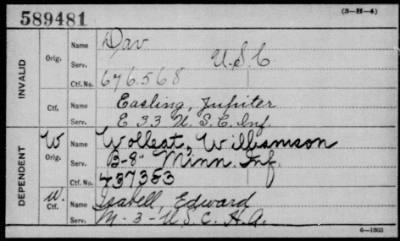 589481
(3-H-4)
INVALID
Orig.
Name Dav
Serv. U.S.C
Ctf.No. 676.568
Ctf.
Name Easling, Jupiter
Serv. E 33 U.S.C. Inf.
DEPENDENT
W
Orig.
Name Wolleat, Williamson
Serv. B-8" Minn. Inf.
Ctf.No. 437353
W.
Ctf.
Name Isabell, Edward
Serv. M-3-U.S.C.H.A.